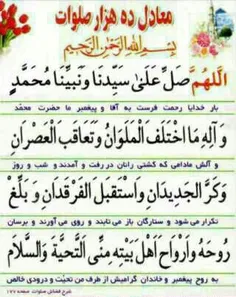 معادل ده هزار صلوات
بِسْمِ اللهِ الرَّحْمٰنِ الرَّحِيْمِ
اَللّهُمَّ صَلِّ عَلىٰ سَيِّدِنا وَنَبِيِّنا مُحَمَّدٍ
بار خدایا رحمت فرست به آقا و پیغمبر ما حضرت محمد
وَ آلِهِ مَا اخْتَلَفَ الْمَلَوَانُ وَتَعاقَبَ الْعَصْرانِ
و آلش مادامی که کشتی رانان در رفت و آمدند و شب و روز
وَكَرَّ الْجَدِيدَانِ وَاسْتَقْبَلَ الْفَرْقَدانِ وَ بَلِّغْ
تکرار می شود و ستارگان باز می تابند و روی می آورند و برسان
رُوحَهُ وَاَرْواحَ اَهْلِ بَيْتِهِ مِنّى التَّحِيَّةَ وَالسَّلامَ
به روح پیغمبر و خاندان گرامیش از طرف من تحیت و درودی خالص
شرح فضائل صلوات صفحه ۱۷۷